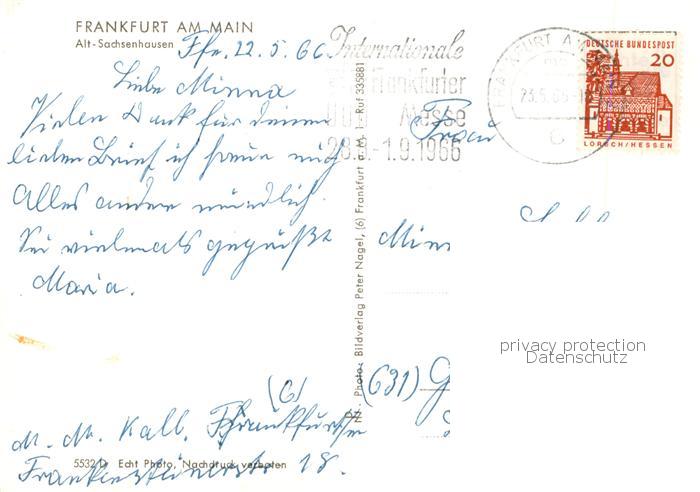 FRANKFURT AM MAIN
Alt-Sachsenhausen
Ffm. 22.5.66
Liebe Minna
Vielen Dank für deinen
lieben Brief, ich freue mich
Alles andere mündlich.
Sei vielmals gegrüßt
Maria.
(6)
M. M. Kalb. Frankfurt/m
Frankensteinerstr 18.
5532 D Echt Photo, Nachdruck verboten
Nr. Photo: Bildverlag Peter Nagel, (6) Frankfurt a. M. 1 - Ruf 335881
Internationale
Frankfurter
Messe
28.8.-1.9.1966
FRANKFURT A
23.5.66
6
DEUTSCHE BUNDESPOST
20
LORSCH/HESSEN
Frau
Minn
(631) G
privacy protection
Datenschutz